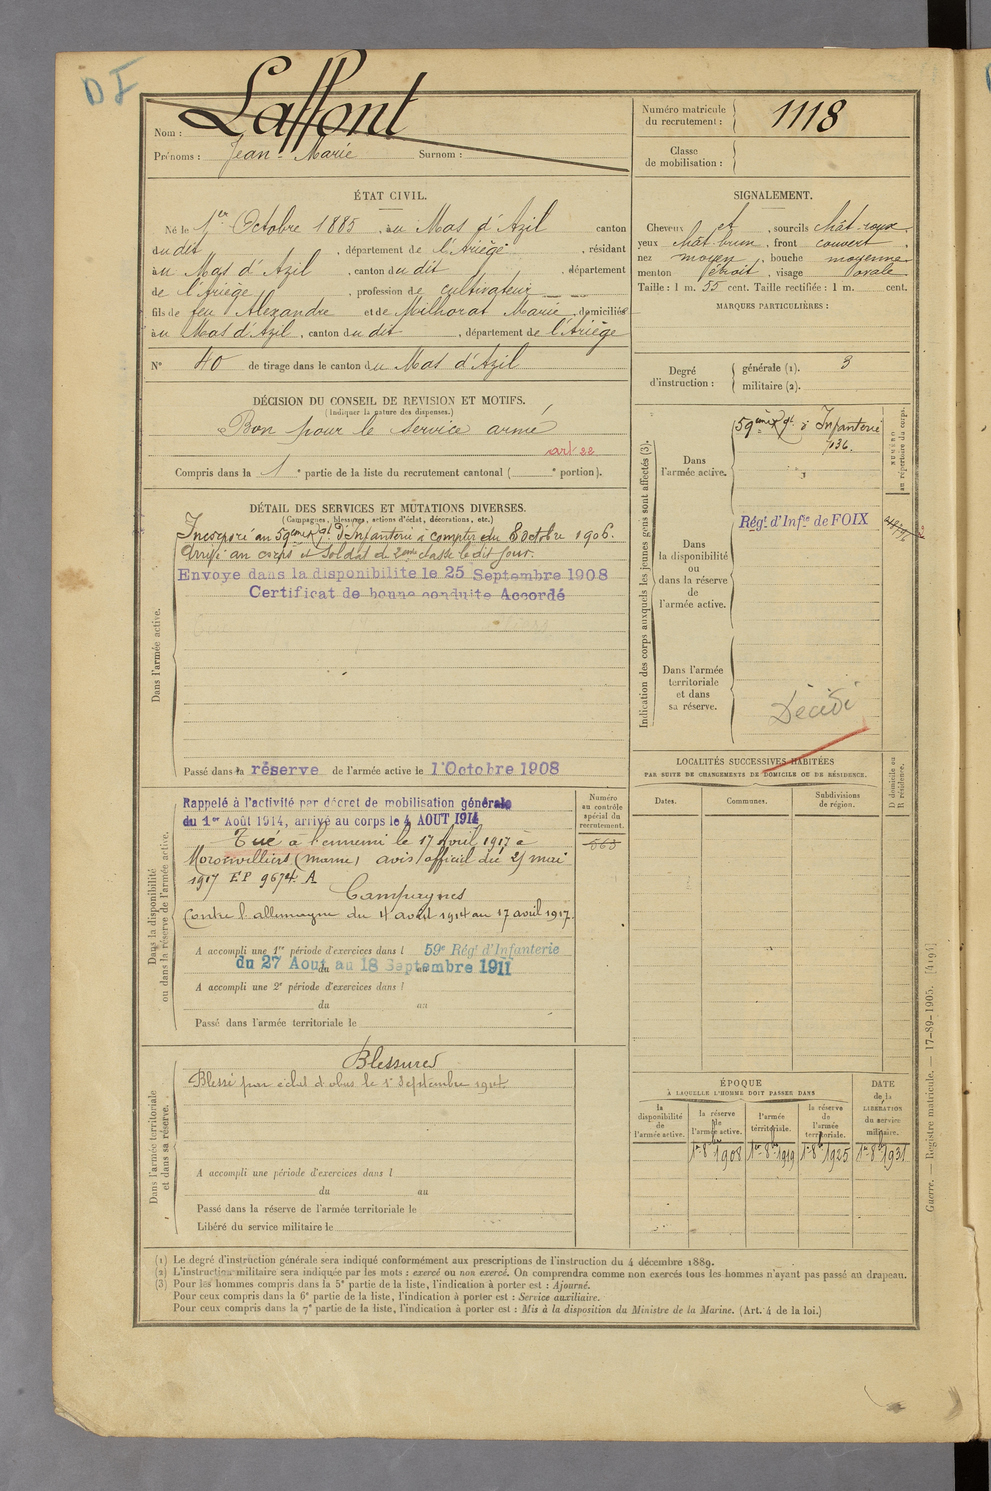 DI
Nom : Laffont
Prénoms : Jean-Marie Surnom :
Numéro matricule du recrutement : 1118
Classe de mobilisation :
ÉTAT CIVIL.
Né le 1er Octobre 1885, au Mas d'Azil canton
du dit, département de l'Ariège, résidant
au Mas d'Azil, canton du dit, département
de l'Ariège, profession de cultivateur
fils de feu Alexandre et de Milhorat Marie, domiciliés
au Mas d'Azil, canton du dit, département de l'Ariège
N° 40 de tirage dans le canton du Mas d'Azil
SIGNALEMENT.
Cheveux et, sourcils chât-roux
yeux chât-brun, front couvert,
nez moyen, bouche moyenne
menton étroit, visage ovale
Taille : 1 m. 55 cent. Taille rectifiée : 1 m. cent.
MARQUES PARTICULIÈRES :
Degré d'instruction : générale (1). 3
militaire (2).
DÉCISION DU CONSEIL DE REVISION ET MOTIFS.
(Indiquer la nature des dispenses.)
Bon pour le service armé
art 22
Compris dans la 1e partie de la liste du recrutement cantonal ( e portion).
DÉTAIL DES SERVICES ET MUTATIONS DIVERSES.
(Campagnes, blessures, actions d'éclat, décorations, etc.)
Dans l'armée active.
Incorporé au 59ème Rgt d'Infanterie à compter du 8 Octobre 1906.
Arrivé au corps et soldat de 2ème classe le dit jour.
Envoye dans la disponibilite le 25 Septembre 1908
Certificat de bonne conduite Accordé
Passé dans la réserve de l'armée active le 1 Octobre 1908
Indication des corps auxquels les jeunes gens sont affectés (3).
NUMÉRO au répertoire du corps.
Dans l'armée active.
59ème Rgt d'Infanterie
Dans la disponibilité ou dans la réserve de l'armée active.
Régt d'Infie de FOIX
Dans l'armée territoriale et dans sa réserve.
Décédé
LOCALITÉS SUCCESSIVES HABITÉES
PAR SUITE DE CHANGEMENTS DE DOMICILE OU DE RÉSIDENCE.
D domicile ou R résidence.
Dates. Communes. Subdivisions de région.
Dans la disponibilité ou dans la réserve de l'armée active.
Numéro au contrôle spécial du recrutement.
663
Rappelé à l'activité par décret de mobilisation générale
du 1er Août 1914, arrivé au corps le 4 AOUT 1914
Tué à l'ennemi le 17 Avril 1917 à
Moronvilliers (Marne) avis officiel du 25 mai
1917 EP 9674 A
Campagnes
Contre l'allemagne du 4 août 1914 au 17 avril 1917.
A accompli une 1re période d'exercices dans l 59e Régt d'Infanterie
du 27 Aout au 18 Septembre 1911
A accompli une 2e période d'exercices dans l
du au
Passé dans l'armée territoriale le
Dans l'armée territoriale et dans sa réserve.
Blessures
Blessé par éclat d'obus le 1er Septembre 1914
A accompli une période d'exercices dans l
du au
Passé dans la réserve de l'armée territoriale le
Libéré du service militaire le
ÉPOQUE
À LAQUELLE L'HOMME DOIT PASSER DANS
DATE de la LIBÉRATION du service militaire.
la disponibilité de l'armée active. la réserve de l'armée active. l'armée territoriale. la réserve de l'armée territoriale.
1er 8bre 1908 1er 8bre 1919 1er 8bre 1925 1er 8bre 1931
(1) Le degré d'instruction générale sera indiqué conformément aux prescriptions de l'instruction du 4 décembre 1889.
(2) L'instruction militaire sera indiquée par les mots : exercé ou non exercé. On comprendra comme non exercés tous les hommes n'ayant pas passé au drapeau.
(3) Pour les hommes compris dans la 5e partie de la liste, l'indication à porter est : Ajourné.
Pour ceux compris dans la 6e partie de la liste, l'indication à porter est : Service auxiliaire.
Pour ceux compris dans la 7e partie de la liste, l'indication à porter est : Mis à la disposition du Ministre de la Marine. (Art. 4 de la loi.)
Guerre. — Registre matricule. — 17-89-1905. [4194]